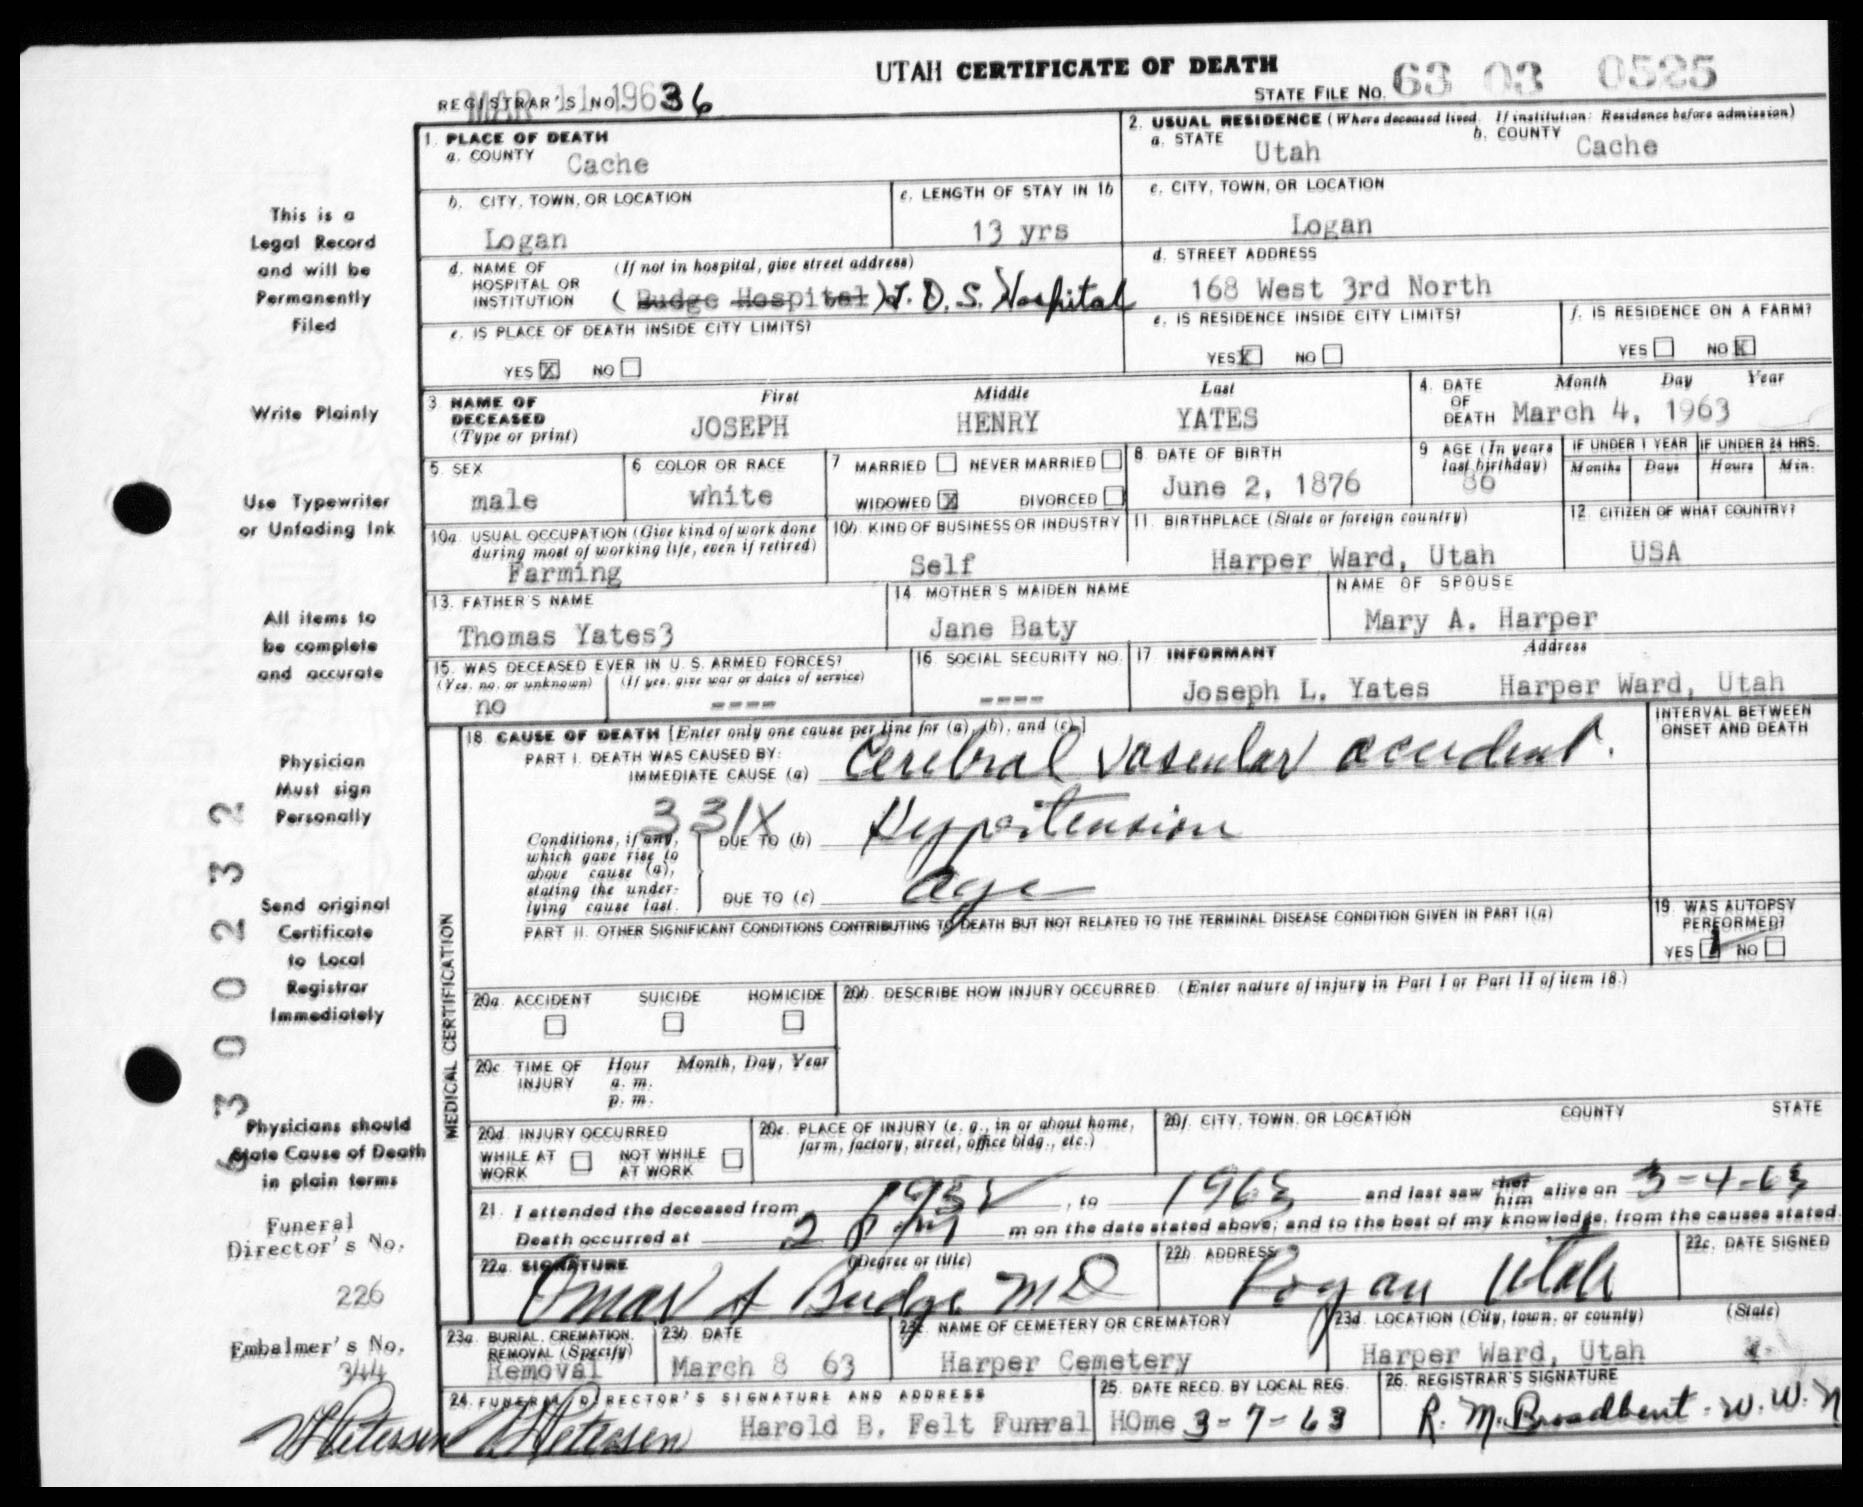 UTAH CERTIFICATE OF DEATH
REGISTRAR'S NO. 36
MAR 11 1963
STATE FILE NO. 63 03 0525
1. PLACE OF DEATH
a. COUNTY Cache
2. USUAL RESIDENCE (Where deceased lived. If institution: Residence before admission)
a. STATE Utah b. COUNTY Cache
b. CITY, TOWN, OR LOCATION
Logan
c. LENGTH OF STAY IN 1b
13 yrs
c. CITY, TOWN, OR LOCATION
Logan
d. NAME OF HOSPITAL OR INSTITUTION (If not in hospital, give street address)
(Budge Hospital) L.D.S. Hospital
d. STREET ADDRESS
168 West 3rd North
e. IS PLACE OF DEATH INSIDE CITY LIMITS?
YES X NO
e. IS RESIDENCE INSIDE CITY LIMITS?
YES X NO
f. IS RESIDENCE ON A FARM?
YES NO X
3. NAME OF DECEASED (Type or print)
First Middle Last
JOSEPH HENRY YATES
4. DATE OF DEATH Month Day Year
March 4, 1963
5. SEX
male
6 COLOR OR RACE
white
7 MARRIED NEVER MARRIED
WIDOWED X DIVORCED
8 DATE OF BIRTH
June 2, 1876
9 AGE (In years last birthday)
86
IF UNDER 1 YEAR IF UNDER 24 HRS.
Months Days Hours Min.
10a. USUAL OCCUPATION (Give kind of work done during most of working life, even if retired)
Farming
10b. KIND OF BUSINESS OR INDUSTRY
Self
11. BIRTHPLACE (State or foreign country)
Harper Ward, Utah
12. CITIZEN OF WHAT COUNTRY?
USA
13. FATHER'S NAME
Thomas Yates3
14. MOTHER'S MAIDEN NAME
Jane Baty
NAME OF SPOUSE
Mary A. Harper
15. WAS DECEASED EVER IN U.S. ARMED FORCES?
(Yes, no, or unknown) (If yes, give war or dates of service)
no ----
16. SOCIAL SECURITY NO.
----
17. INFORMANT Address
Joseph L. Yates Harper Ward, Utah
MEDICAL CERTIFICATION
18. CAUSE OF DEATH [Enter only one cause per line for (a), (b), and (c).]
INTERVAL BETWEEN ONSET AND DEATH
PART I. DEATH WAS CAUSED BY:
IMMEDIATE CAUSE (a) Cerebral vascular accident.
331X
Conditions, if any, which gave rise to above cause (a), stating the underlying cause last.
DUE TO (b) Hypertension
DUE TO (c) age
PART II. OTHER SIGNIFICANT CONDITIONS CONTRIBUTING TO DEATH BUT NOT RELATED TO THE TERMINAL DISEASE CONDITION GIVEN IN PART I(a)
19. WAS AUTOPSY PERFORMED?
YES NO
20a. ACCIDENT SUICIDE HOMICIDE
20b. DESCRIBE HOW INJURY OCCURRED. (Enter nature of injury in Part I or Part II of item 18.)
20c. TIME OF INJURY Hour Month, Day, Year
a. m.
p. m.
20d. INJURY OCCURRED
WHILE AT WORK NOT WHILE AT WORK
20e. PLACE OF INJURY (e. g., in or about home, farm, factory, street, office bldg., etc.)
20f. CITY, TOWN, OR LOCATION COUNTY STATE
21. I attended the deceased from 1952, to 1963 and last saw her him alive on 3-4-63
Death occurred at 2 P m m on the date stated above; and to the best of my knowledge, from the causes stated.
22a. SIGNATURE (Degree or title)
Omar S Budge MD
22b. ADDRESS
Logan Utah
22c. DATE SIGNED
23a. BURIAL, CREMATION, REMOVAL (Specify)
Removal
23b. DATE
March 8 63
23c. NAME OF CEMETERY OR CREMATORY
Harper Cemetery
23d. LOCATION (City, town, or county) (State)
Harper Ward, Utah
24. FUNERAL DIRECTOR'S SIGNATURE AND ADDRESS
Harold B. Felt Funral HOme
25. DATE RECD. BY LOCAL REG.
3-7-63
26. REGISTRAR'S SIGNATURE
R. M. Broadbent - W. W. N
This is a
Legal Record
and will be
Permanently
Filed
Write Plainly
Use Typewriter
or Unfading Ink
All items to
be complete
and accurate
Physician
Must sign
Personally
Send original
Certificate
to Local
Registrar
Immediately
Physicians should
State Cause of Death
in plain terms
Funeral
Director's No.
226
Embalmer's No.
344
6 3 0 0 2 3 2